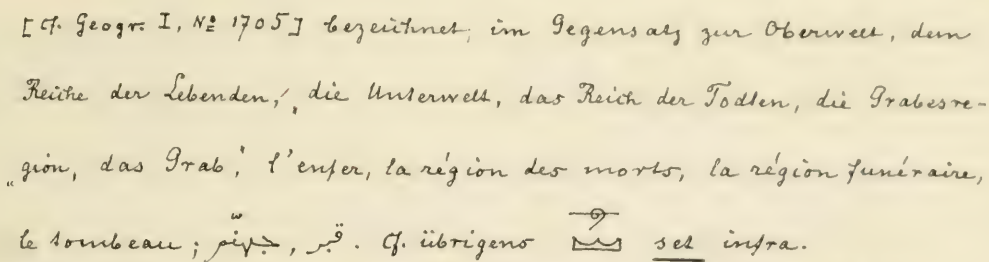 [cf. Geogr. I, Nº 1705] bezeichnet, im Gegensatz zur Oberwelt, dem
Reiche der Lebenden, „die Unterwelt, das Reich der Todten, die Grabesre-
„gion, das Grab,“ l'enfer, la région des morts, la région funéraire,
le tombeau; جهنّم, قبر. Cf. übrigens set infra.